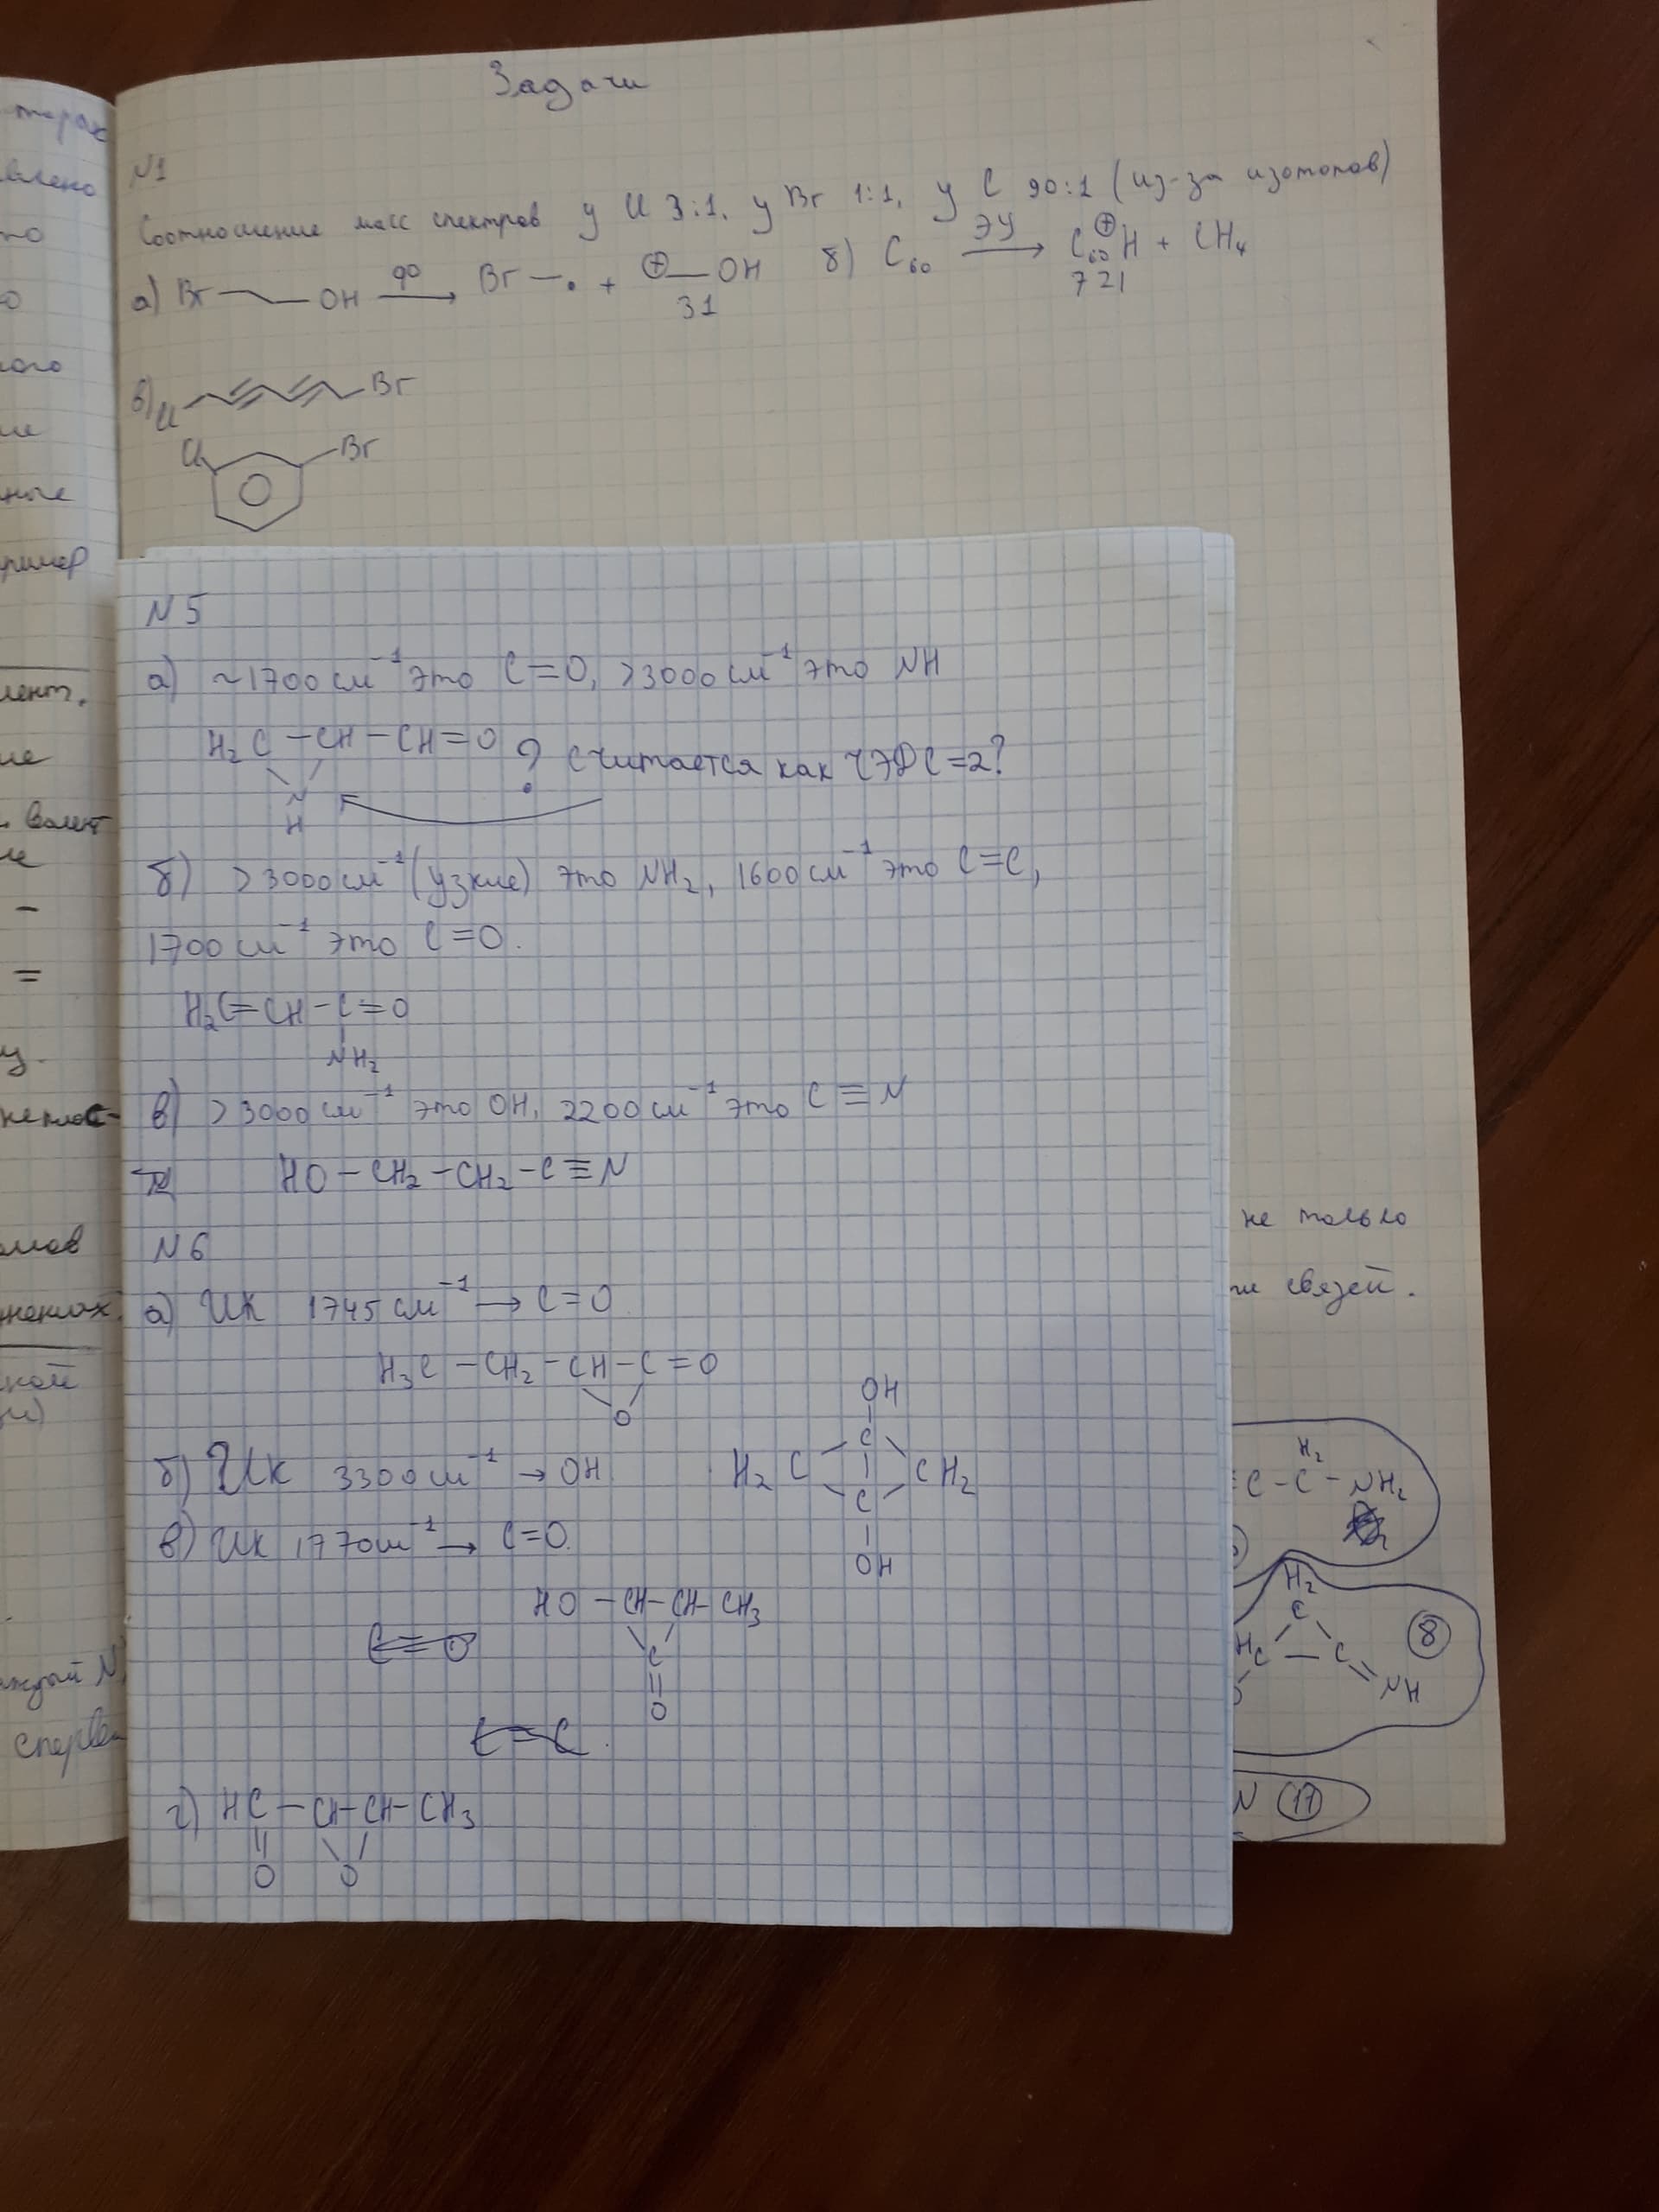 Задачи
N1
Соотношение масс спектров у Cl 3:1, у Br 1:1, у C 90:1 (из-за изотопов)
а) Br OH → Br —• + ⊕—OH б) C60 —ЭУ→ C60⊕H + CH4
31 721
в) Cl Br
Cl Br
N5
а) ~1700 см⁻¹ это C=O, >3000 см⁻¹ это NH
H2C – CH – CH = O ? считается как ЧЭДС=2?
N
H
б) >3000 см⁻¹ (узкие) это NH2, 1600 см⁻¹ это C=C,
1700 см⁻¹ это C=O.
H2C=CH – C=O
NH2
в) >3000 см⁻¹ это OH, 2200 см⁻¹ это C≡N
HO – CH2 – CH2 – C≡N
N6
а) ИК 1745 см⁻¹ → C=O
H3C – CH2 – CH – C = O
O
б) ИК 3300 см⁻¹ → OH
OH
C
H2C CH2
C
OH
в) ИК 1770 см⁻¹ → C=O.
HO – CH – CH – CH3
C
O
C≡O
C=C
г) HC – CH – CH – CH3
O O
не только
связей.
H2
C – C – NH2
H2
C
HC — C
NH
8
N 17
влено
ного
ример
. валент
непл��с-
омов
нениях
ной
аждый N
сперва